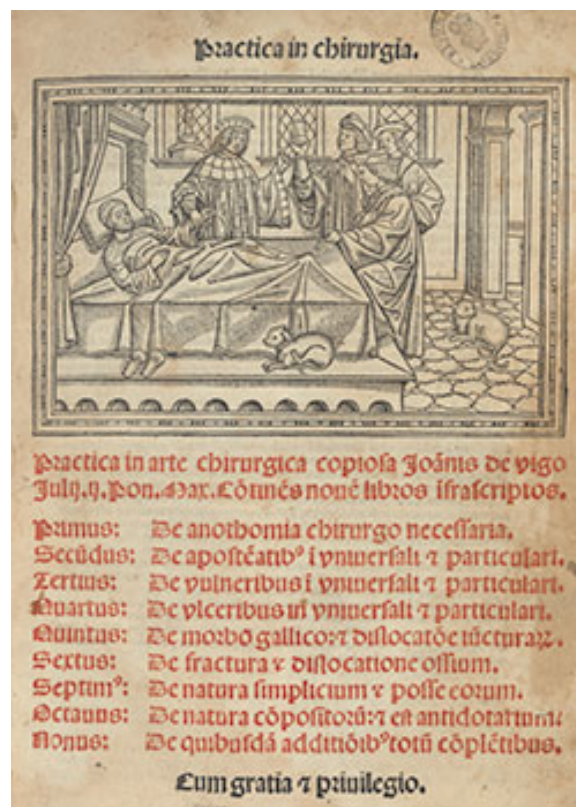 Practica in chirurgia.
Practica in arte chirurgica copiosa Joãnis de vigo
Julij.ij.Pon.Max.Cõtinẽs nouẽ libros ifrascriptos.
Primus: De anothomia chirurgo necessaria.
Secũdus: De apostẽatibꝰ ĩ vniuersali ⁊ particulari.
Tertius: De vulneribus ĩ vniuersali ⁊ particulari.
Quartus: De vlceribus in vniuersali ⁊ particulari.
Quintus: De morbo gallico:⁊ dislocatõe iũcturaꝝ.
Sextus: De fractura ⁊ dislocatione ossium.
Septimꝰ: De natura simplicium ⁊ posse eorum.
Octauus: De natura cõpositorũ:⁊ est antidotarium:
Nonus: De quibusdã additiõibꝰ totũ cõplẽtibus.
Cum gratia ⁊ priuilegio.